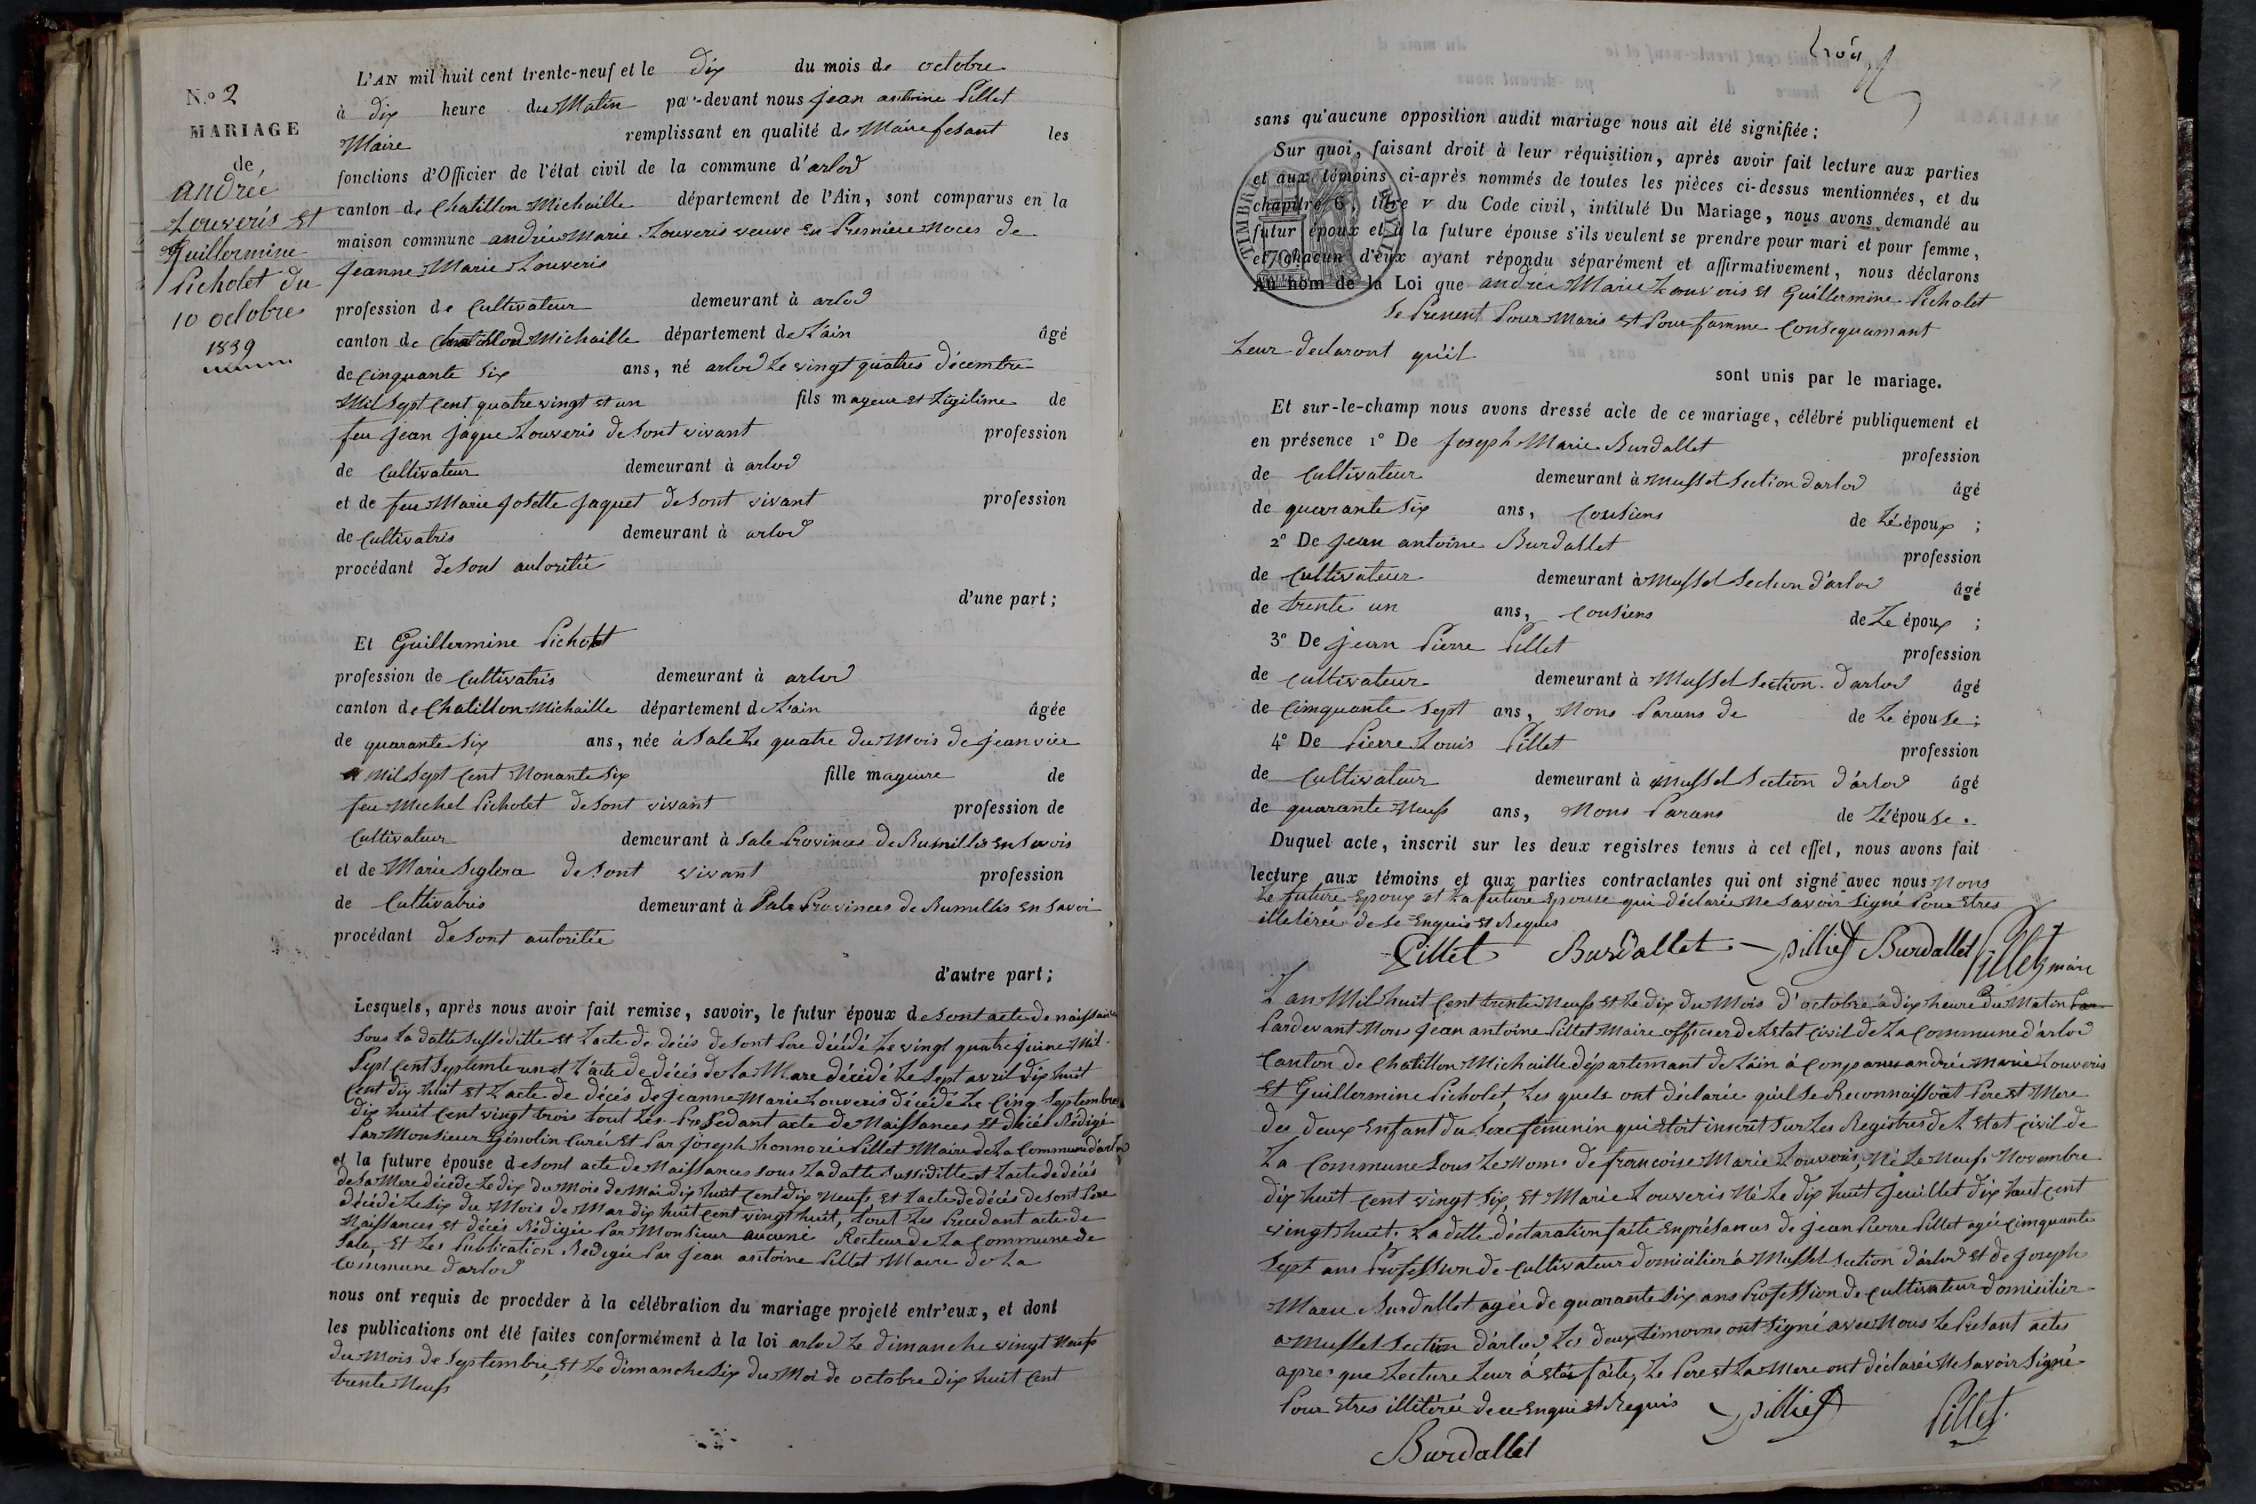 N.° 2
MARIAGE
de
andrée
Louveris et
Guillermine
Picholet du
10 octobre
1839
L'AN mil huit cent trente-neuf et le dix du mois de octobre
à dix heure du Matin par-devant nous jean antoine Pillet
Maire remplissant en qualité de Maire fesant les
fonctions d'Officier de l'état civil de la commune d'arlod
canton de Chatillon Michaille département de l'Ain, sont comparus en la
maison commune andrée Marie Louveris veuve en Premiere Noces de
Jeanne Marie Louveris
profession de Cultivateur demeurant à arlod
canton de Chatillon Michaille département de L'ain âgé
de Cinquante Six ans, né arlod Le vingt quatres décembre
Mil Sept Cent quatre vingt et un fils mageur et Légitime de
feu jean jaque Louveris de Sont vivant profession
de Cultivateur demeurant à arlod
et de feu Marie josette jaquet de Sont vivant profession
de Cultivatris demeurant à arlod
procédant de Sont autoritée
d'une part ;
Et Guillermine Picholet
profession de Cultivatris demeurant à arlod
canton de Chatillon Michaille département de L'ain âgée
de quarante Six ans, née à Sale Le quatre du Mois de jeanvier
Mil Sept Cent Nonante Six fille mageure de
feu Michel Picholet de Sont vivant profession de
Cultivateur demeurant à Sale Provinces de Rumillis en Savois
et de Marie de Sont vivant profession
de Cultivatris demeurant à Sale Provinces de Rumillis en Savoi
procédant de Sont autoritée
d'autre part ;
Lesquels, après nous avoir fait remise, savoir, le futur époux de Sont acte de naissance
Sous La datte Susséditte et Lacte de décis de Sont Pere décédé Le vingt quatre juine Mil
Sept Cent Septente un et L'acte de décés de La Mare décédé Le Sept avril dix huit
Cent dix huit et Lacte de décés de jeanne Marie Louveris décédé Le Cinq Septembre
dix huit Cent vingt trois tout Les Presedant acte de Naissances et décés Rédigé
Par Monsieur Curé et Par joseph honnoré Pillet Maire de La Commune d'arlod
et la future épouse de Sont acte de Naissances sous La datte Sussiditte et Lacte de décés
de sa Mere décédé Le dix du Mois de Mai dix huit Cent dix Neufs et Lacte de décés de Sont Pere
décédé Le Six du Mois de Mar dix huit Cent vingt huit, tout Les Precedant acte de
Naissances et décés Rédigée Par Monsieur aucune Recteur de La Commune de
Sale, et Les Publication Redigée Par jean antoine Pillet Maire de La
Commune d'arlod
nous ont requis de procéder à la célébration du mariage projeté entr'eux, et dont
les publications ont été faites conformément à la loi arlod Le dimanche vingt Neufs
du Mois de Septembre, et Le dimanche Six du Moi de octobre dix huit Cent
trente Neufs
sans qu'aucune opposition audit mariage nous ait été signifiée ;
Sur quoi, faisant droit à leur réquisition, après avoir fait lecture aux parties
et aux témoins ci-après nommés de toutes les pièces ci-dessus mentionnées, et du
chapitre 6, titre v du Code civil, intitulé Du Mariage, nous avons demandé au
futur époux et à la future épouse s'ils veulent se prendre pour mari et pour femme,
et chacun d'eux ayant répondu séparément et affirmativement, nous déclarons
Au nom de la Loi que andrée Marie Louveris et Guillermine Picholet
Se Prenent Pour Maris et Pour famme Consequamant
Leur declaront qu'il
sont unis par le mariage.
Et sur-le-champ nous avons dressé acte de ce mariage, célébré publiquement et
en présence 1° De joseph Marie Burdallet profession
de Cultivateur demeurant à Mussel Section d'arlod âgé
de quarante Six ans, Cousiens de Lé époux ;
2° De jean antoine Burdallet profession
de Cultivateur demeurant à Mussel Section d'arlod âgé
de trente un ans, Cousiens de Le époux ;
3° De jean Pierre Pillet profession
de Cultivateur demeurant à Mussel Section d'arlod âgé
de Cinquante Sept ans, Nons Parans de de Le épouse ;
4° De Pierre Louis Pillet profession
de Cultivateur demeurant à Mussel Section d'arlod âgé
de quarante Neufs ans, Nons Parans de Lé épouse.
Duquel acte, inscrit sur les deux registres tenus à cet effet, nous avons fait
lecture aux témoins et aux parties contractantes qui ont signé avec nous Nons
Le future Epoux et La future Epouse qui déclarie Ne Savoir Signé Pour Etres
illétérée de Se Enquis et Requis
Pillet Burdallet Pillet Burdallet Pillet maire
L'an Mil huit Cent trente Neufs et Le dix du Mois d'octobre à dix heure du Matin Par
Pardevant Nous jean antoine Pillet Maire officier de Letat Civil de La Commune d'arlod
Canton de Chatillon Michaille départimant de L'ain à Comparus andrée Marie Louveris
et Guillermine Picholet, Les quels ont déclarée qu'il Se Reconnaissoit Pere et Mere
des deux Enfant du Sexe féminin qui étoit inscrit Sur Les Registres de L'Etat Civil de
La Commune Sous Le Noms de françoise Marie Louveris, Né Le Neufs Novembre
dix huit Cent vingt Six, et Marie Louveris Né Le dix huit Jeuillet dix huit cent
vingt huit. La ditte déclaration faite en présances de jean Pierre Pillet agée Cinquante
Sept ans Profession de Cultivateur domicilier à Mussel Section d'arlod et de joseph
Marie Burdallet agée de quarante Six ans Profession de Cultivateur domicilier
a Mussel Section d'arlod Les deux témoins ont Signé avec Nous Le Présant actes
apres que Lecture Leur à étés faite, Le Pere et La Mere ont déclarée Ne Savoir Signé
Pour Etres illétérée de ce Enquis et Requis Pillet Pillet
Burdallet